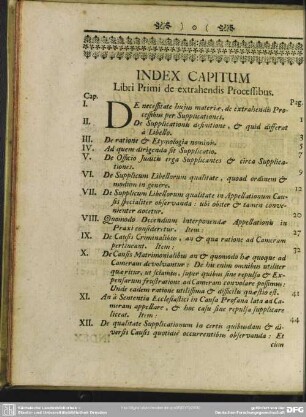 ) o (
INDEX CAPITUM
Libri Primi de extrahendis Processibus.
Cap. Pag.
I. DE necessitate hujus materiæ, de extrahendis Processibus per Supplicationes. 1
II. De Supplicationis definitione, & quid differat
à Libello. 3
III. De ratione & Etymologia nominis. 5
IV. Ad quem dirigenda sit Supplicatio. 7
V. De Officio Judicis erga Supplicantes & circa Supplicationes.
VI. De Supplicum Libellorum qualitate, quoad ordinem &
modum in genere.
VII. De Supplicum Libellorum qualitate in Appellationum Causis specialiter observanda: ubi obiter & tamen convenienter docetur. 20
VIII. Quomodo Decendium interponendæ Appellationis in
Praxi consideretur. Item: 29
IX. De Causis Criminalibus, an & qua ratione ad Cameram
pertineant. Item: 32
X. De Causis Matrimonialibus an & quomodo hæ quoque ad
Cameram devolvantur: De hoc enim omnibus utiliter
quæritur, ut sciamus, super quibus sine repulsa & Expensarum frustratione ad Cameram convolare possimus:
Unde eadem ratione utilissima & difficilis quæstio est. 41
XI. An à Sententia Ecclesiastici in Causa Profana lata ad Cameram appellare, & hoc casu sine repulsa supplicare
liceat. Item: 44
XII. De qualitate Supplicationum in certis quibusdam & diversis Causis quotidiè occurrentibus observanda: Et
cum